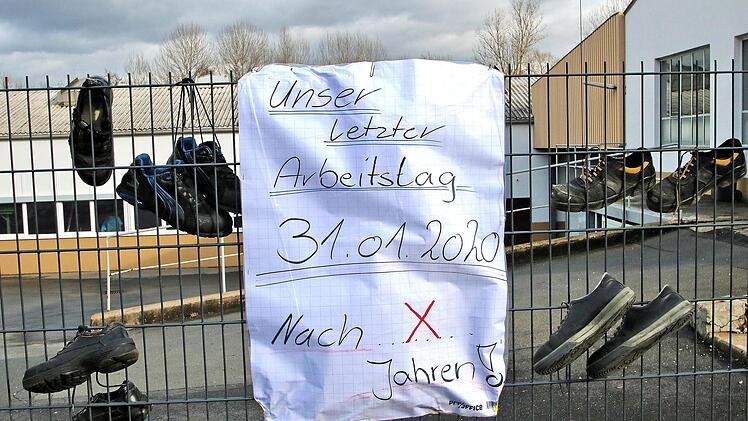 Unser
letzter
Arbeitstag
31.01.2020
Nach ... X ...
Jahren!